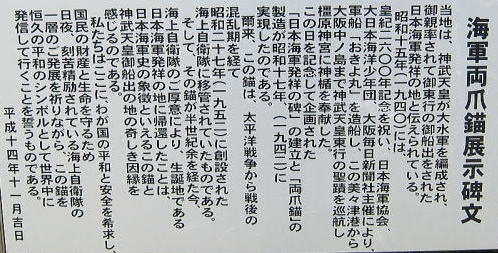 海軍両爪錨展示碑文
当地は、神武天皇が大水軍を編成され、
御親率されて御東行の御船出をされた
日本海軍発祥の地と伝えられている。
昭和十五年(一九四〇)には、
皇紀二六〇〇年記念を祝い、日本海軍協会、
大日本海洋少年団、大阪毎日新聞社主催により、
軍船「おきよ丸」を造船し、この美々津港から
大阪中ノ島まで神武天皇東行の聖蹟を巡航し
橿原神宮に神楯を奉献した。
この日を記念して企画された
「日本海軍発祥の碑」の建立と「両爪錨」の
製造が昭和十七年(一九四二)に
実現したのである。
爾来、この錨は、太平洋戦争から戦後の
混乱期を経て
昭和二十七年(一九五二)に創設された
海上自衛隊に移管されていたものである。
そして、その錨が半世紀余を経た今、
海上自衛隊のご厚意により、生誕地である
日本海軍発祥の地に帰還したことは、
日本海軍史の象徴といえるこの錨と
神武天皇御船出の地の奇しき因縁を
感じるのである。
私たちは、ここにわが国の平和と安全を希求し、
国民の財産と生命を守るため
日夜、刻苦精励されている海上自衛隊の
一層のご発展を祈りながら、この錨を
恒久の平和のシンボルとして世界中に
発信して行くことを誓うものである。
平成十四年十一月吉日